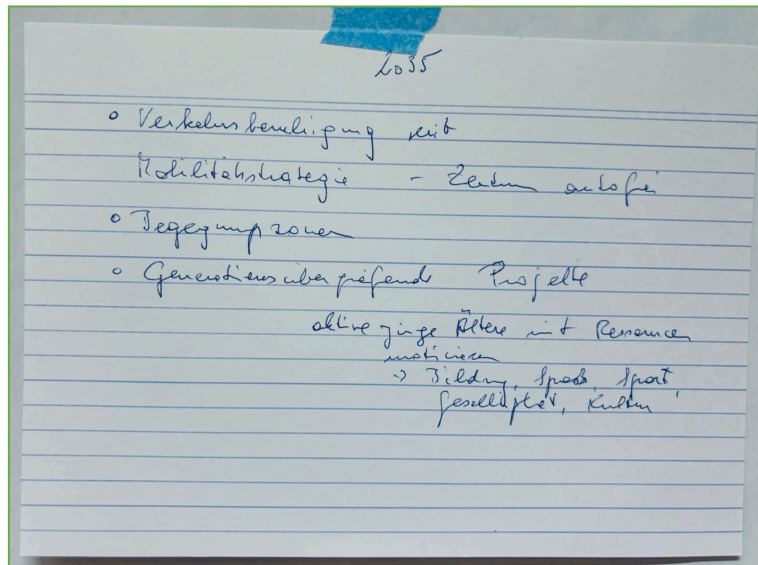 2035
○ Verkehrsberuhigung mit
Mobilitätsstrategie - Zentrum autofrei
○ Begegnungszonen
○ Generationsübergreifende Projekte
aktive junge Ältere mit Ressourcen
motivieren
-> Bildung, Spass, Sport,
Geselligkeit, Kultur